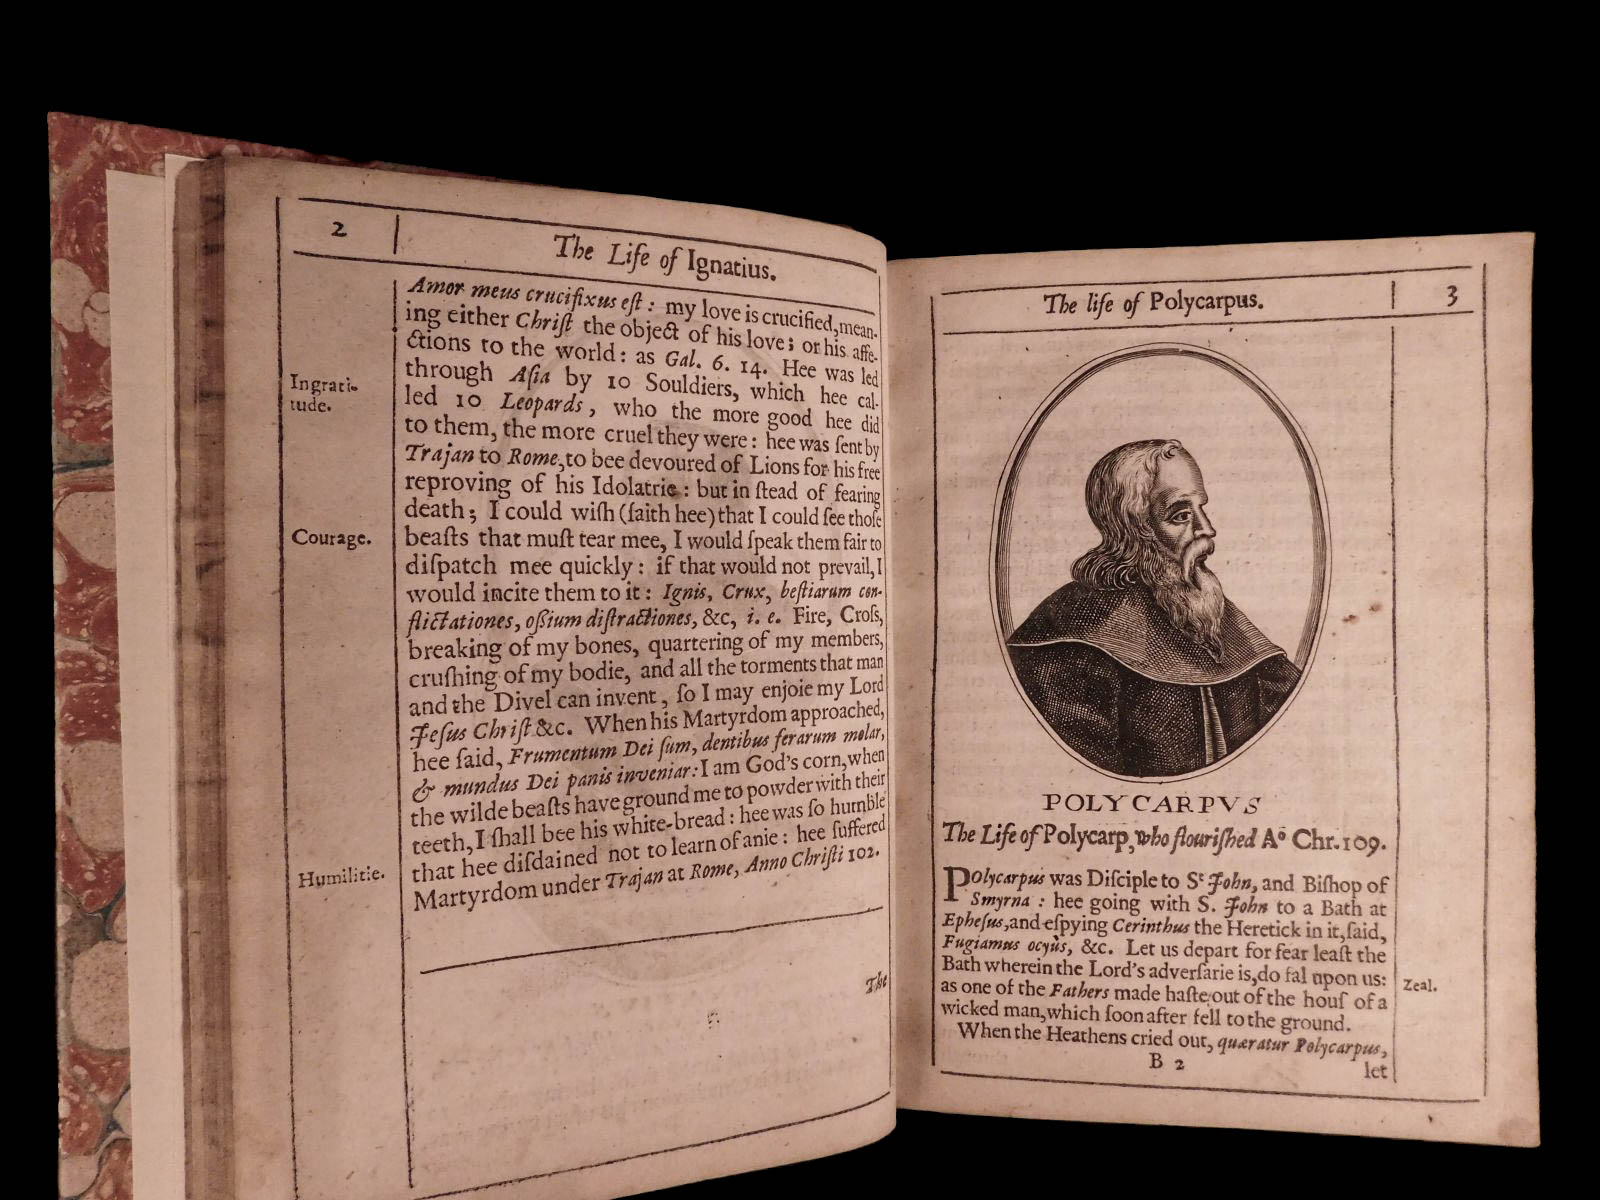 2
The Life of Ignatius.
Amor meus crucifixus eſt : my love is crucified, mean-
ing either Chriſt the object of his love ; or his affe-
ctions to the world : as Gal. 6. 14. Hee was led
through Aſia by 10 Souldiers, which hee cal-
led 10 Leopards , who the more good hee did
to them, the more cruel they were : hee was ſent by
Trajan to Rome, to bee devoured of Lions for his free
reproving of his Idolatrie : but in ſtead of fearing
death ; I could wiſh (ſaith hee) that I could ſee thoſe
beaſts that muſt tear mee, I would ſpeak them fair to
diſpatch mee quickly : if that would not prevail, I
would incite them to it : Ignis, Crux, beſtiarum con-
flictationes, oſsium diſtractiones, &c, i. e. Fire, Croſs,
breaking of my bones, quartering of my members,
cruſhing of my bodie, and all the torments that man
and the Divel can invent , ſo I may enjoie my Lord
Jeſus Chriſt &c. When his Martyrdom approached,
hee ſaid, Frumentum Dei ſum, dentibus ferarum molar,
& mundus Dei panis inveniar : I am God's corn, when
the wilde beaſts have ground me to powder with their
teeth, I ſhall bee his white-bread : hee was ſo humble
that hee diſdained not to learn of anie : hee ſuffered
Martyrdom under Trajan at Rome, Anno Chriſti 102.
The
Ingrati-
tude.
Courage.
Humilitie.
The life of Polycarpus.
3
POLYCARPVS
The Life of Polycarp, who flouriſhed Aº Chr. 109.
Polycarpus was Diſciple to St John, and Biſhop of
Smyrna : hee going with S. John to a Bath at
Epheſus, and eſpying Cerinthus the Heretick in it, ſaid,
Fugiamus ocyùs, &c. Let us depart for fear leaſt the
Bath wherein the Lord's adverſarie is, do fal upon us :
as one of the Fathers made haſte out of the houſ of a
wicked man, which ſoon after fell to the ground.
When the Heathens cried out, quæratur Polycarpus,
B 2
let
Zeal.